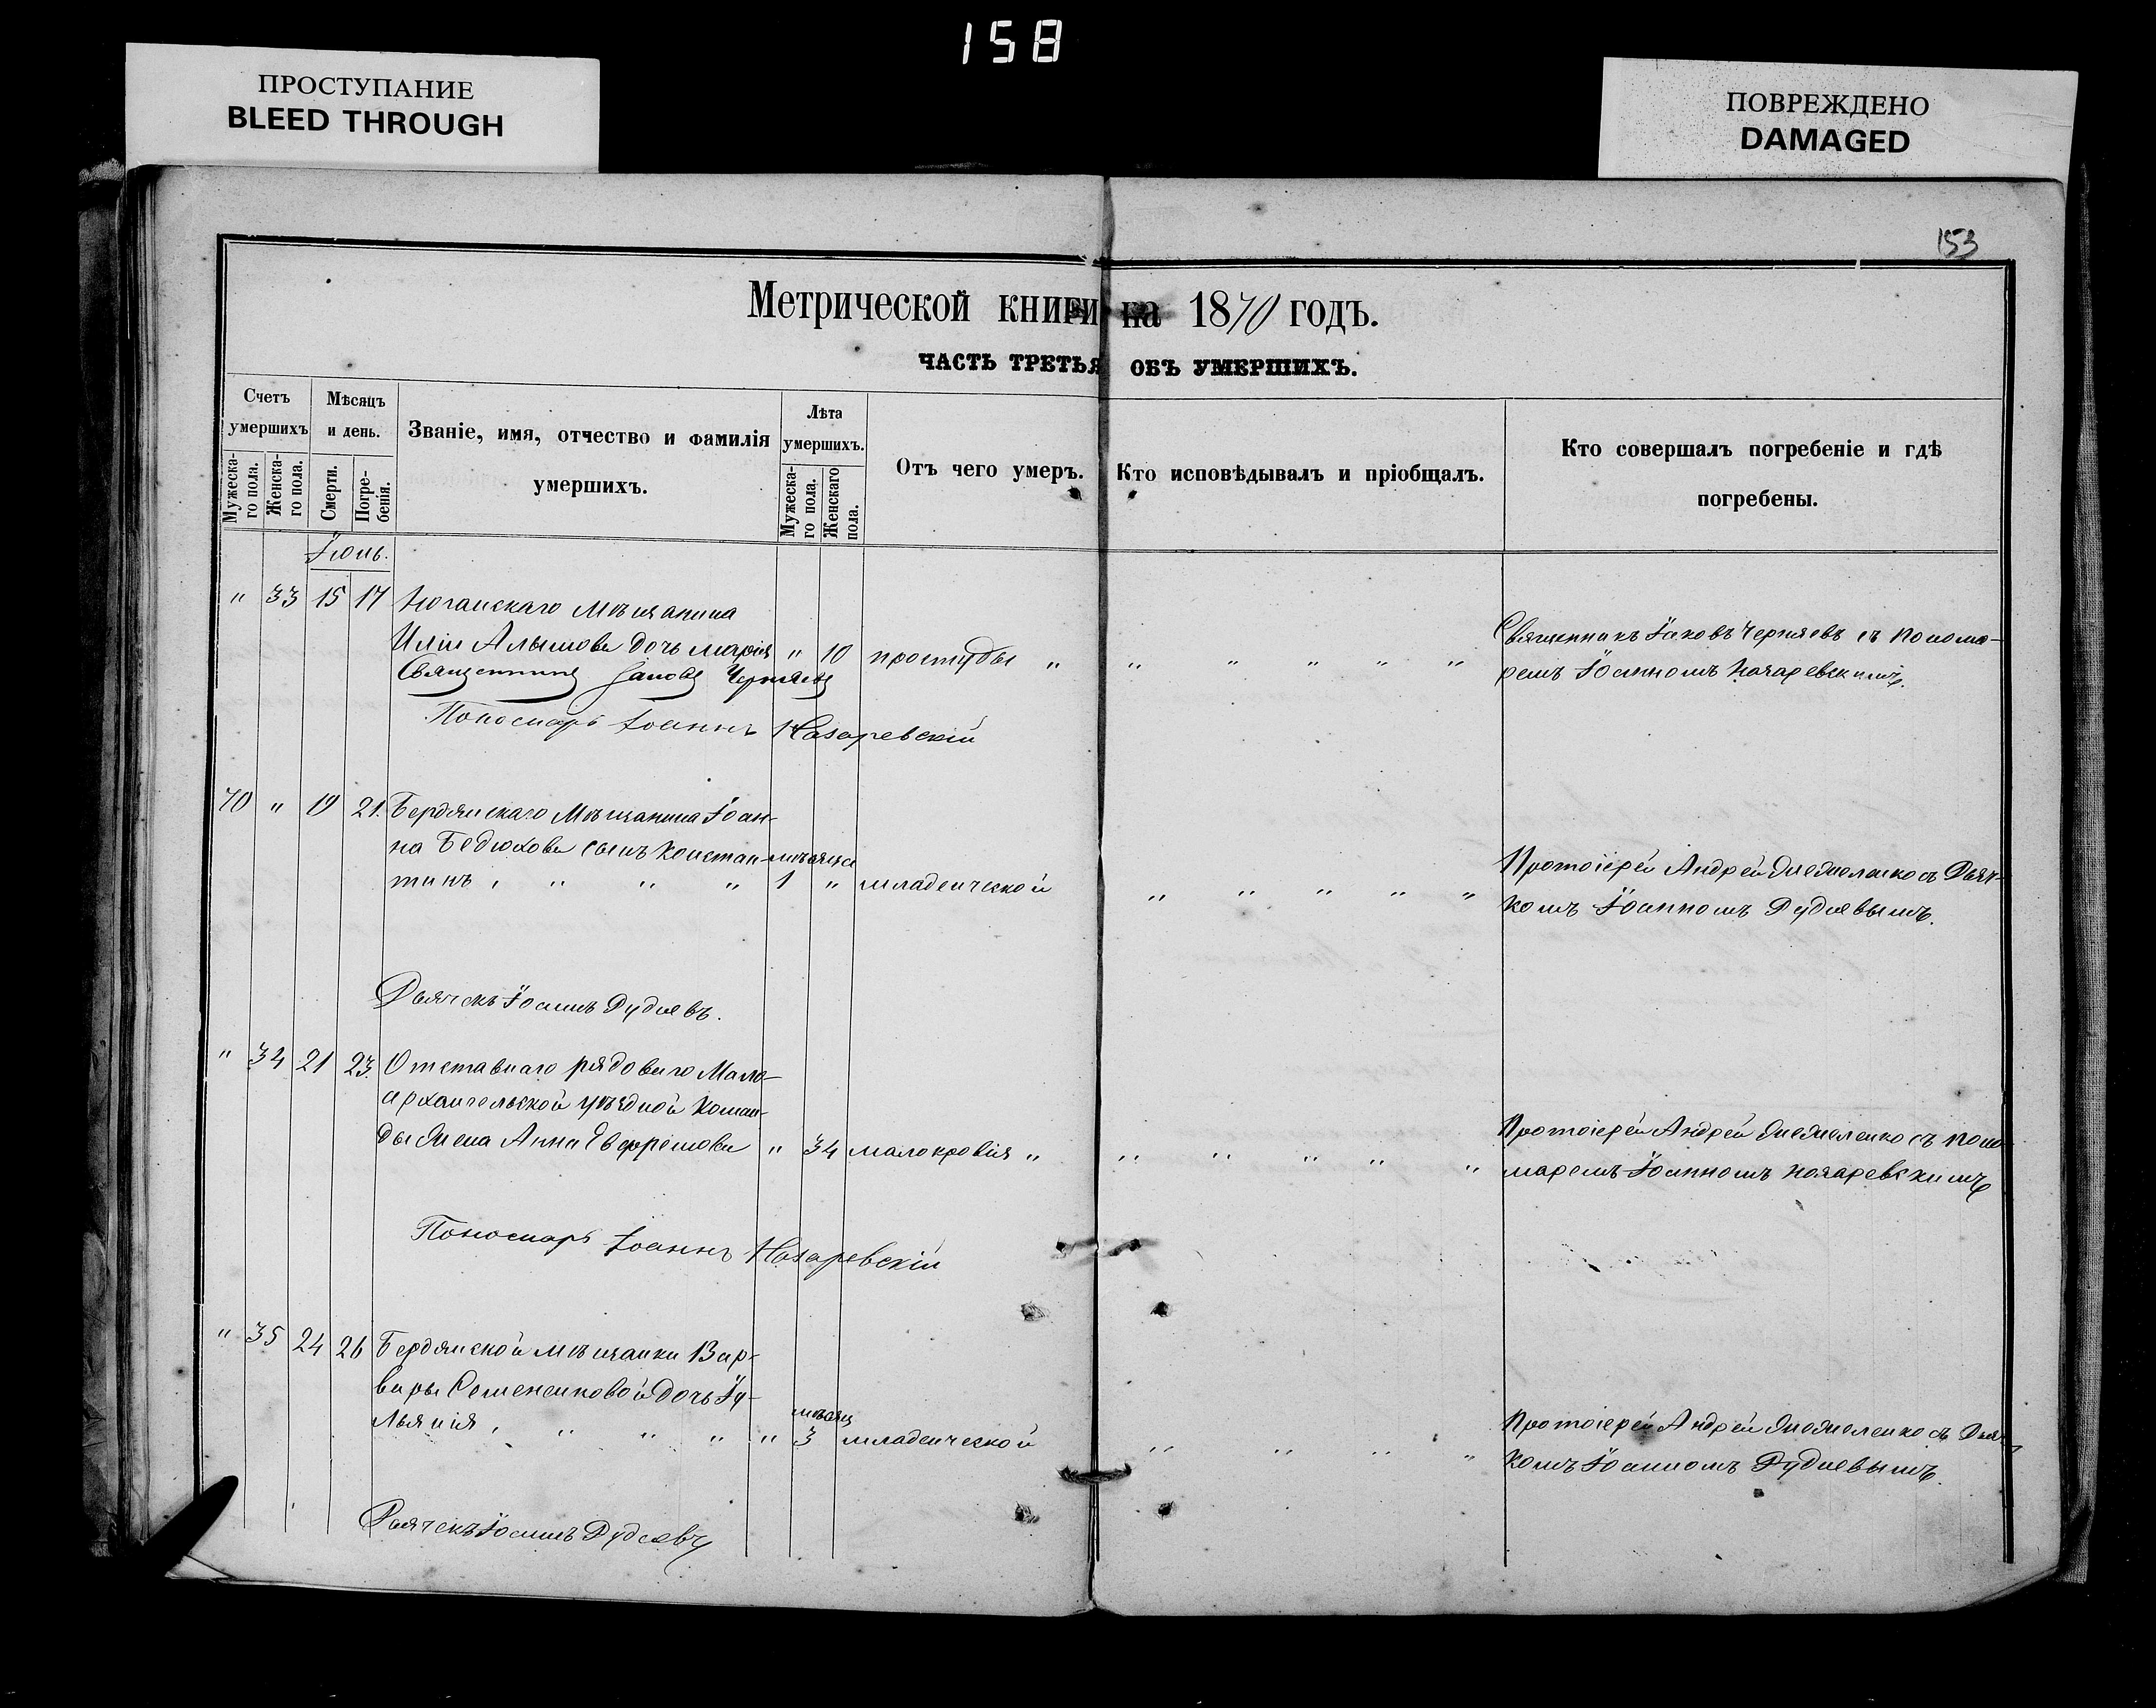 158
ПРОСТУПАНИЕ
BLEED THROUGH
ПОВРЕЖДЕНО
DAMAGED
153
Метрической книги на 1870 годъ.
ЧАСТЬ ТРЕТЬЯ ОБЪ УМЕРШИХЪ.
Счетъ умершихъ
Мѣсяцъ и день.
Званіе, имя, отчество и фамилія умершихъ.
Лѣта умершихъ.
Отъ чего умеръ.
Кто исповѣдывалъ и пріобщалъ.
Кто совершалъ погребеніе и гдѣ погребены.
Мужеска-го пола.
Женска-го пола.
Смерти.
Погре-бенія.
Мужеска-го пола.
Женскаго пола.
Іюнь.
" 33 15 17 Ногайскаго Мѣщанина
Иліи Алымова дочь Марія " 10 простуды " " " " " "
Священникъ Іаковъ Черняевъ съ Понома-
ремъ Іоанномъ Назаревскимъ.
Священникъ Іаковъ Черняевъ
Пономарь Іоаннъ Назаревскій
70 " 19 21. Бердянскаго Мѣщанина Іоан-
на Бедюхова сынъ Констан- мѣсяца
тинъ, " " " 1 " младенческой " " " " "
Протоіерей Андрей съ Дьяч-
комъ Іоанномъ Рудневымъ.
Дьячекъ Іоаннъ Рудневъ.
" 34 21 23. Отставнаго рядоваго Мало-
архангельской уѣздной Коман-
ды жена Анна Евфремова " 34 малокровія " " " " " "
Протоіерей Андрей съ Поно-
маремъ Іоанномъ Назаревскимъ
Пономарь Іоаннъ Назаревскій
" 35 24 26 Бердянской мѣщанки Вар-
вары Семененковой дочь Іу-
льянія, " " " " мѣсяц 3 младенческой " " " "
Протоіерей Андрей съ Дьяч-
комъ Іоанномъ Рудневымъ.
Дьячекъ Іоаннъ Рудневъ